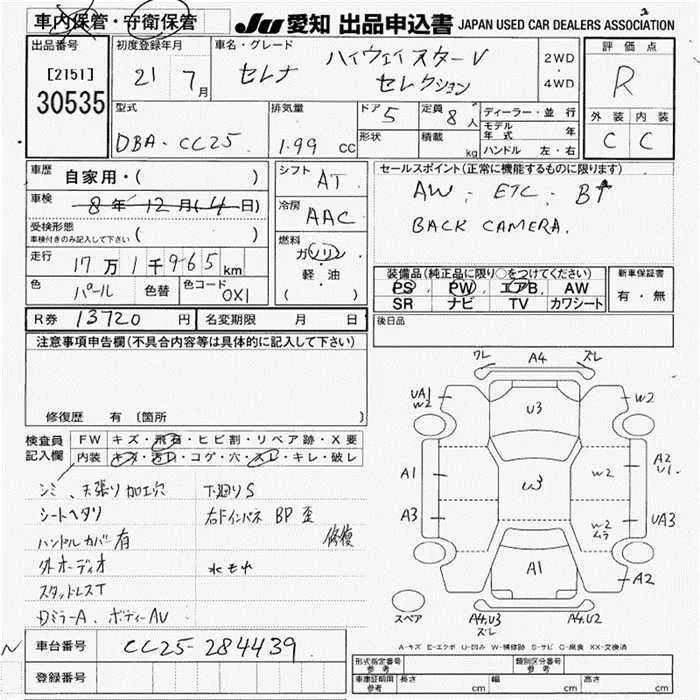 車内保管・守衛保管
JU 愛知 出品申込書 JAPAN USED CAR DEALERS ASSOCIATION
出品番号
[2151]
30535
初度登録年月
21 7月
車名・グレード
セレナ
ハイウェイスターV
セレクション
2WD
・
4WD
評価点
R
外装 内装
C C
型式
DBA-CC25
排気量
1.99 CC
ドア 5
形状
定員 8人
積載 kg
ディーラー・並行
モデル年式 年
ハンドル 左・右
車歴 自家用・( )
車検 8年 12月(4日)
受検形態
車検付きのみ記入して下さい ( )
走行 17万1千965km
色 パール 色替 色コード OX1
シフト AT
冷房 AAC
燃料
ガソリン
・
軽・油
( )
セールスポイント(正常に機能するものに限ります)
AW. ETC. BT
BACK CAMERA.
装備品(純正品に限り○をつけてください)
PS PW エアB AW
SR ナビ TV カワシート
新車保証書
有・無
R券 13720円 名変期限 月 日
後日品
注意事項申告欄(不具合内容等は具体的に記入して下さい)
修復歴 有 〔箇所 〕
検査員記入欄
FW キズ・飛石・ヒビ割・リペア跡・X要
内装 キズ・汚レ・コゲ・穴・スレ・キレ・破レ
シミ、天張り加工穴
シートヘタリ
ハンドルカバー有
外オーディオ
スタッドレスT
Dミラー A、ボディー AU
下廻りS
右Fインパネ BP 歪
修復
水もれ
ワレ A4 ズレ
UA1
W2
U3
W2
A1
U3
W2
A2
U1.
A3
W2
ムラ
UA3
A1
A2
スペア
A4.U3
ズレ
A4.U2
A-キズ E-エクボ U-凹み W-補修跡 S-サビ C-腐食 XX-交換済
N
車台番号 CC25-284439
登録番号
形式指定番号 参考
類別区分番号 参考
車庫証明用 参考 長さ cm 幅 cm 高さ cm